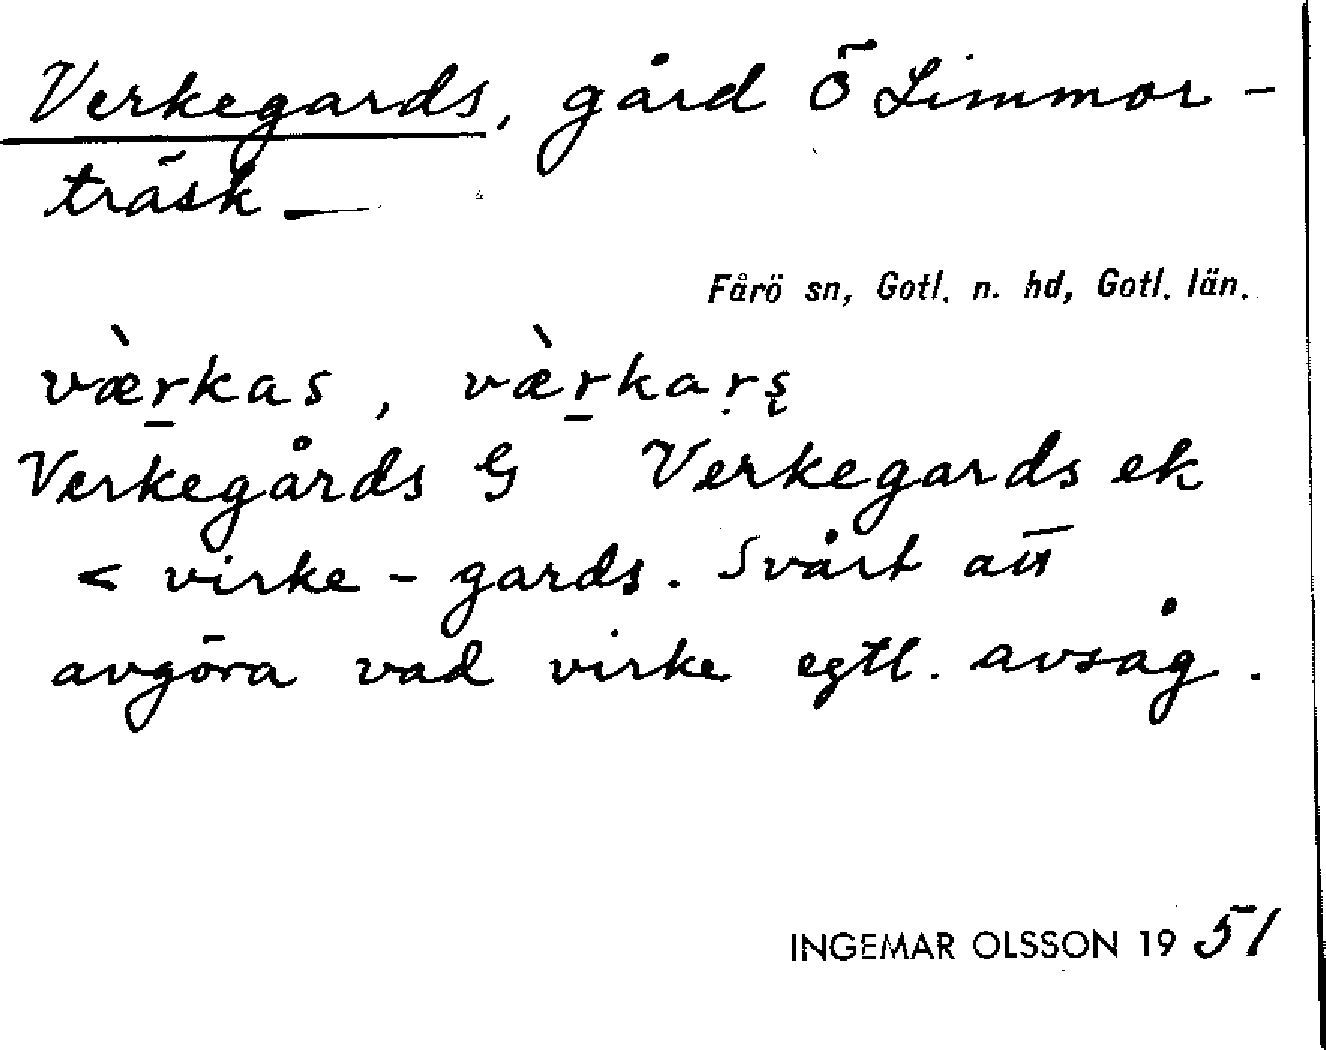 Verkegards, gård Ö Limmor-
träsk —
Fårö sn, Gotl. n. hd, Gotl. län.
vær̠̀kas, vær̠̀kaṛș
Verkegårds G Verkegards ek
< virke-gards. Svårt att
avgöra vad virke egtl. avsåg.
INGEMAR OLSSON 1951